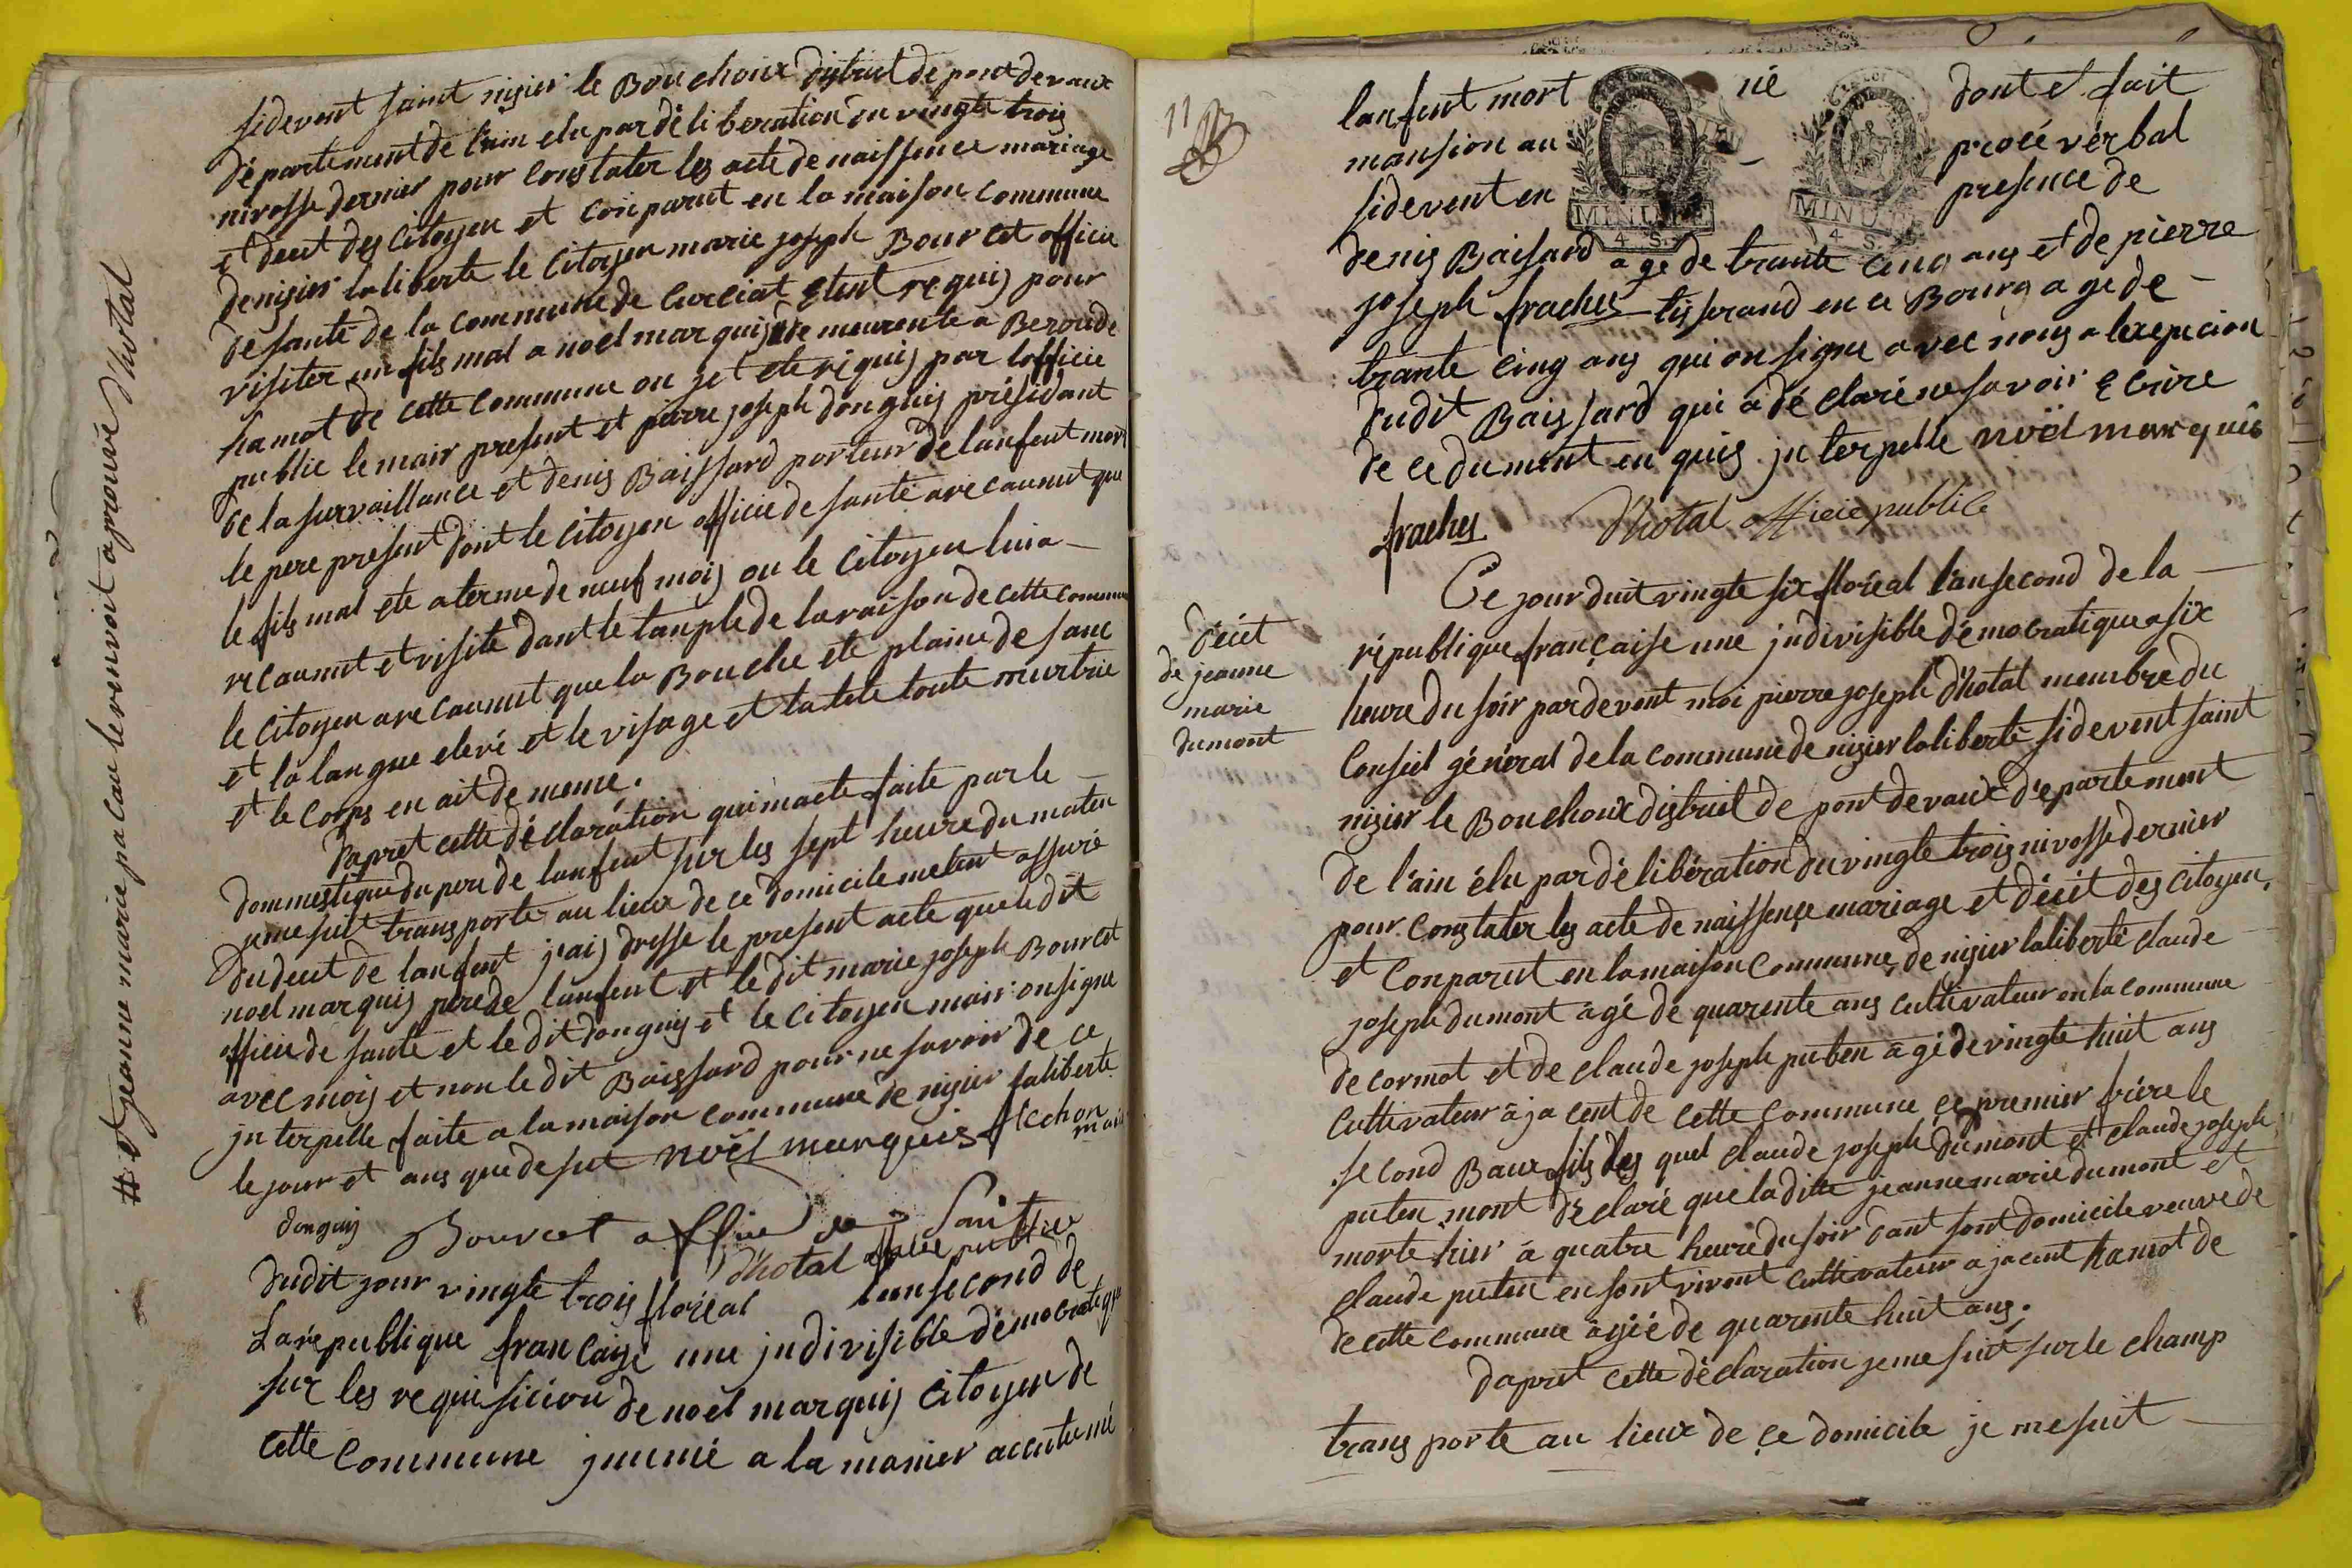 sidevent saint nisier le Bouchoux distruct de pont de vaux
département de l'ain elu par délibération du vingte trois
nivosse dernier pour constater les acte de naissence mariage
et decet des citoyen et conparut en la maison commune
de nisier la liberte le citoyen marie joseph Bourcet officie
de santé de la commune de Curciat etent requis pour
visiter un fils mal a noel marquis de meurente a Beroude
hamot de cette commune ou je et ete riquis par lofficie
public le mair present et pierre joseph donguis présidant
de la survaillance et denis Baissard porteur de lanfent mort
le pere present dont le citoyen officie de santé a recaunut que
le fils mal ete a terme de neuf mois ou le citoyen lui a
recaunut et visite dant le tanple de la raison de cette commune
le citoyen a recaunut que la Bouche ete plaine de sanc
et la langue elevé et le visage et la tete toute murtrie
et le corps en ait de meme.
Dapret cette déclaration qui mat ete faite par le
dommestique du pere de lanfent sur les sept heure du maten
je me suit transporte au lieux de ce domicile me tent assuré
du deut de lanfent j'ais dresse le present acte que le dit
noel marquis pere de lanfent et le dit marie joseph Bourcet
officie de santé et le dit donguis et le citoyen mair on signe
avec mois et non le dit Baissard pour ne savoir de ce
interpelle faite a la maison commune de nisier laliberte
le jour et ans que de sut noël marquis flechon
mair
donguis Bourcet officie de Santé
d'hotal officie public
dudit jour vingte trois floréal lan second de
La republique francaise une indivisible démocratique
sur les requisicion de noel marquis citoyen de
cette commune jnumé a la manier accutumé
# et jeanne marie pa cau le renvoit aprouvé d'hotal
11
lanfent mort né dont et fait
mansion au procé vérbal
sidevent en presence de
denis Baisard age de trante cinq ans et de pierre
joseph fraches tisserand en ce Bourg age de
trante cinq ans qui on signe avec nous a lexepcion
dudit Baissard qui a déclaré ne savoir ecrire
de ce dument en quis interpelle noël marquis
fraches D'hotal officie public
MINUTE
4. S.
LA LOI
MINUTE
4 S.
décet
de jeanne
marie
dumont
Ce jourduit vingte six floréal l'an second de la
république française une jndivisible démocratique a six
heure du soir pardevent moi pierre joseph d'hotal membre du
Conseil général de la commune de nisier laliberté sidevent saint
nisier le Bouchoux distruit de pont devaux département
de l'ain élu par délibération du vingte trois nivosse dernier
pour constater les acte de naissençe mariage et décét des citoyen
et conparut en la maison commune de nisier laliberté claude
joseph dumont âgé de quarente ans cultivateur en la commune
de cormot et de claude joseph puten âgé de vingte huit ans
cultivateur a ja cent de cette commune ce premier frére le
second Baux fils des quel claude joseph dumont et claude joseph
puten mont déclaré que la ditte jeanne marie dumont et
morte hier à quatre heure du soir dant sont domicile veuve de
claude puten en sont vivent cultivateur a jacent hamot de
de cette commune âgée de quarente huit ans.
dapret cette déclaration je me suit sur le champ
trans porte au lieux de ce domicile je me suit